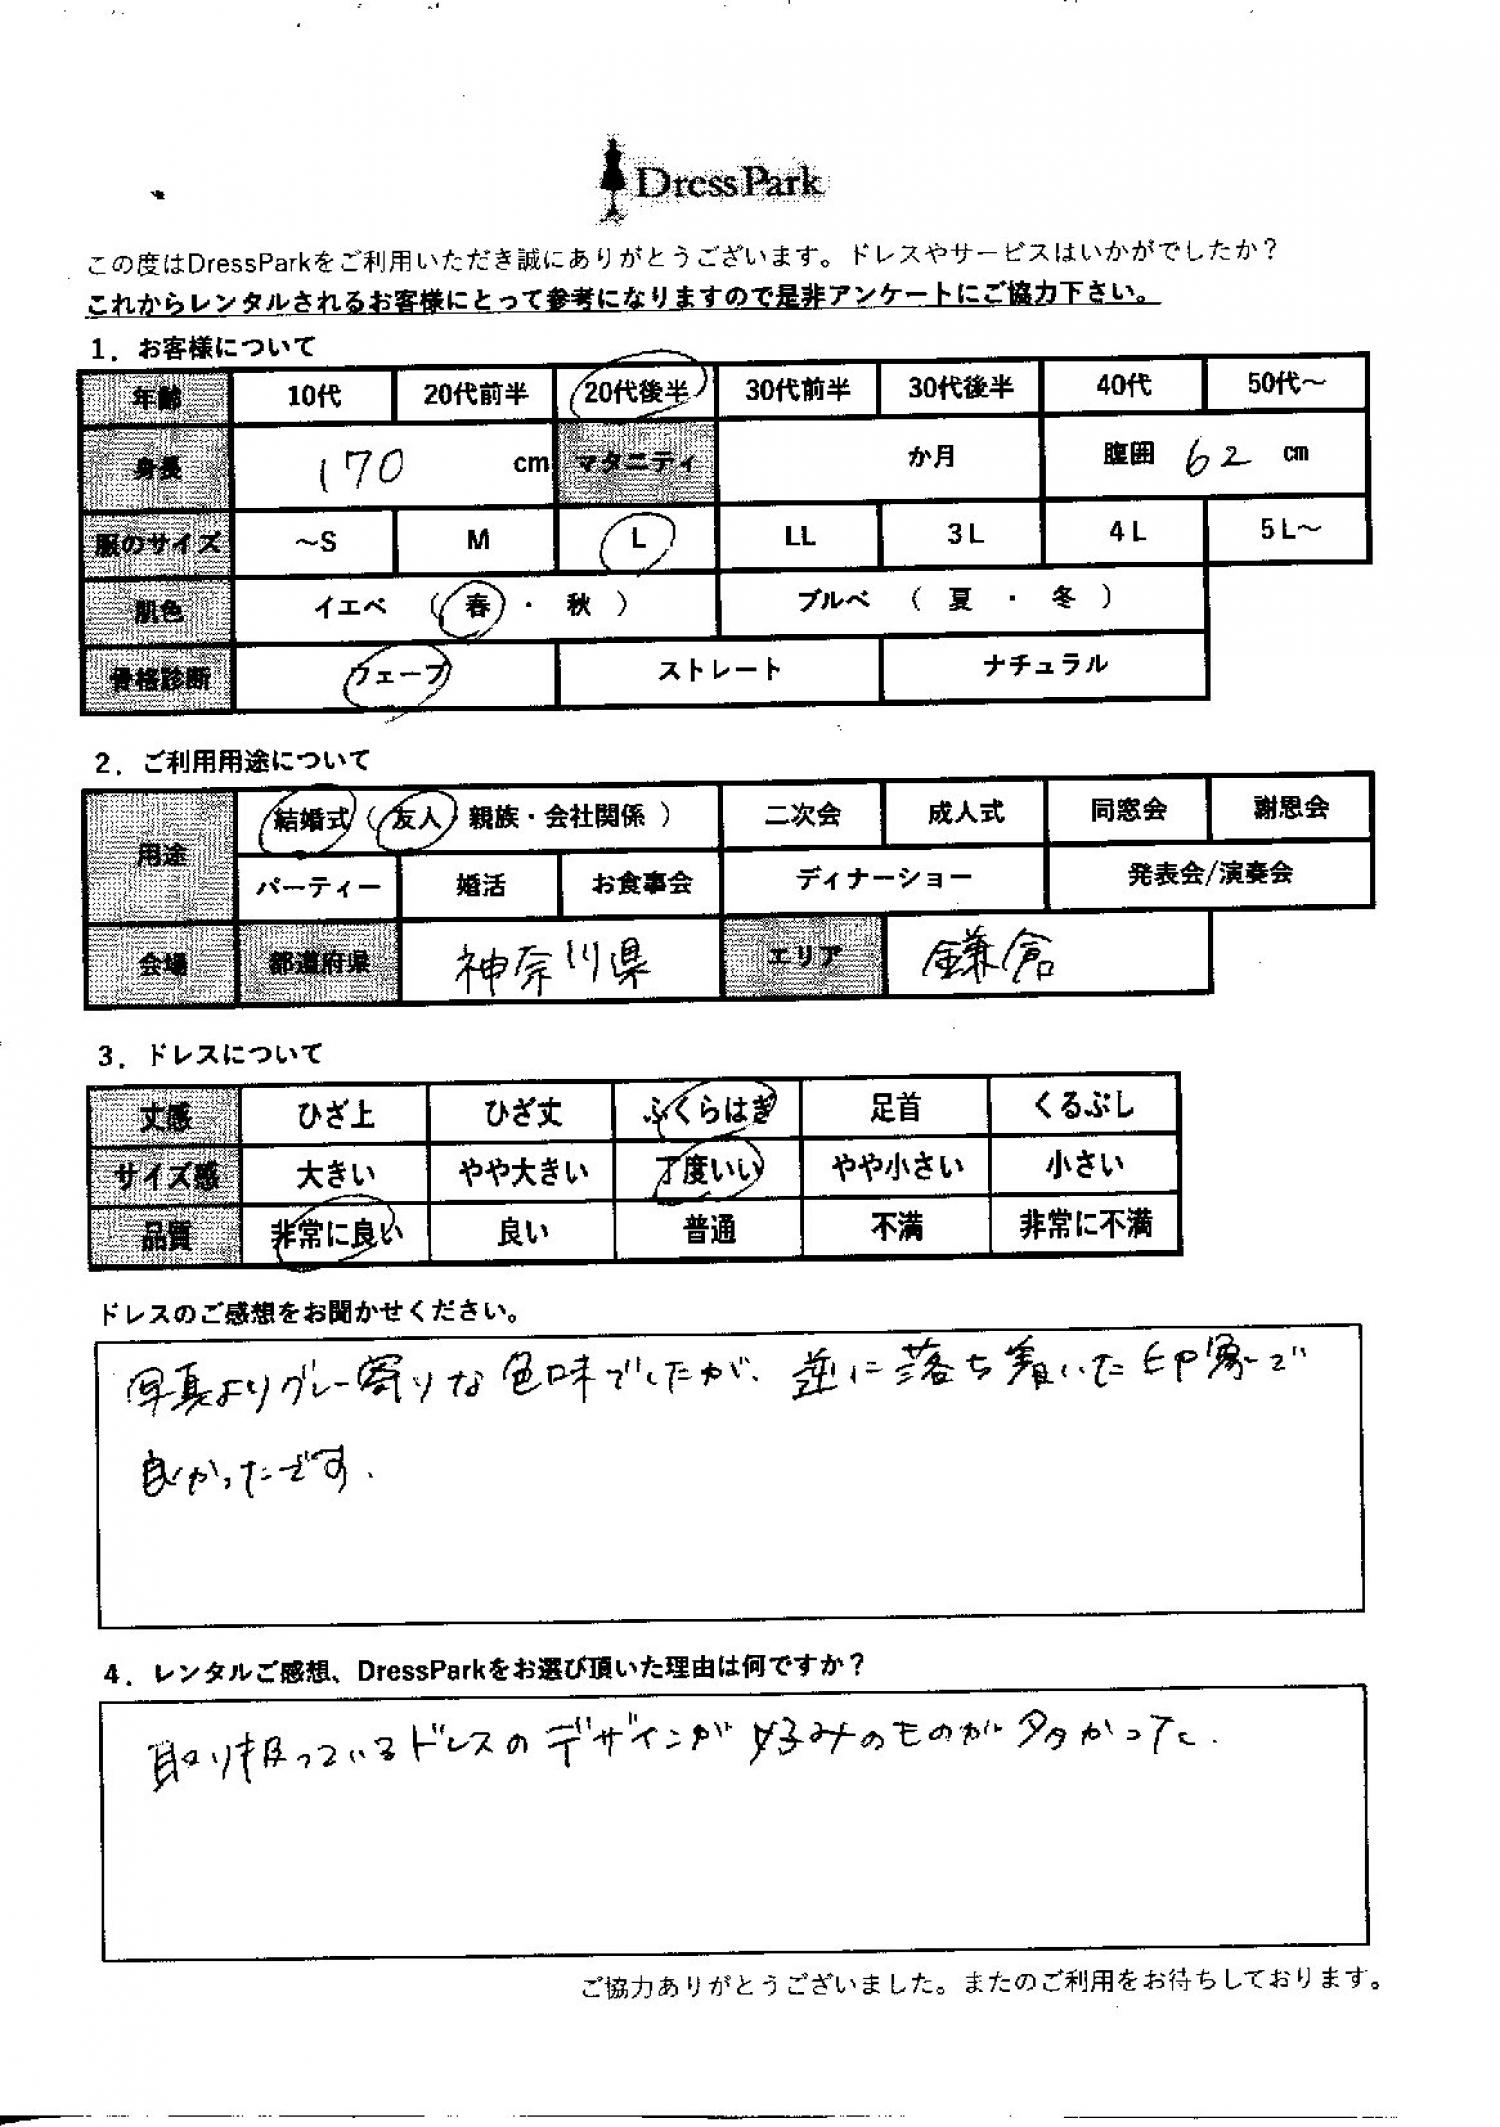 DressPark
この度はDressParkをご利用いただき誠にありがとうございます。ドレスやサービスはいかがでしたか？
これからレンタルされるお客様にとって参考になりますので是非アンケートにご協力下さい。
1．お客様について
年齢 10代 20代前半 20代後半 30代前半 30代後半 40代 50代～
身長 170 cm マタニティ か月 腹囲 62 cm
服のサイズ ～S M L LL 3L 4L 5L～
肌色 イエベ （ 春 ・ 秋 ） ブルベ （ 夏 ・ 冬 ）
骨格診断 ウェーブ ストレート ナチュラル
2．ご利用用途について
用途 結婚式（ 友人・親族・会社関係 ） 二次会 成人式 同窓会 謝恩会
パーティー 婚活 お食事会 ディナーショー 発表会/演奏会
会場 都道府県 神奈川県 エリア 鎌倉
3．ドレスについて
丈感 ひざ上 ひざ丈 ふくらはぎ 足首 くるぶし
サイズ感 大きい やや大きい 丁度いい やや小さい 小さい
品質 非常に良い 良い 普通 不満 非常に不満
ドレスのご感想をお聞かせください。
写真よりグレー寄りな色味でしたが、逆に落ち着いた印象で
良かったです.
4．レンタルご感想、DressParkをお選び頂いた理由は何ですか？
取り扱っているドレスのデザインが好みのものが多かった.
ご協力ありがとうございました。またのご利用をお待ちしております。